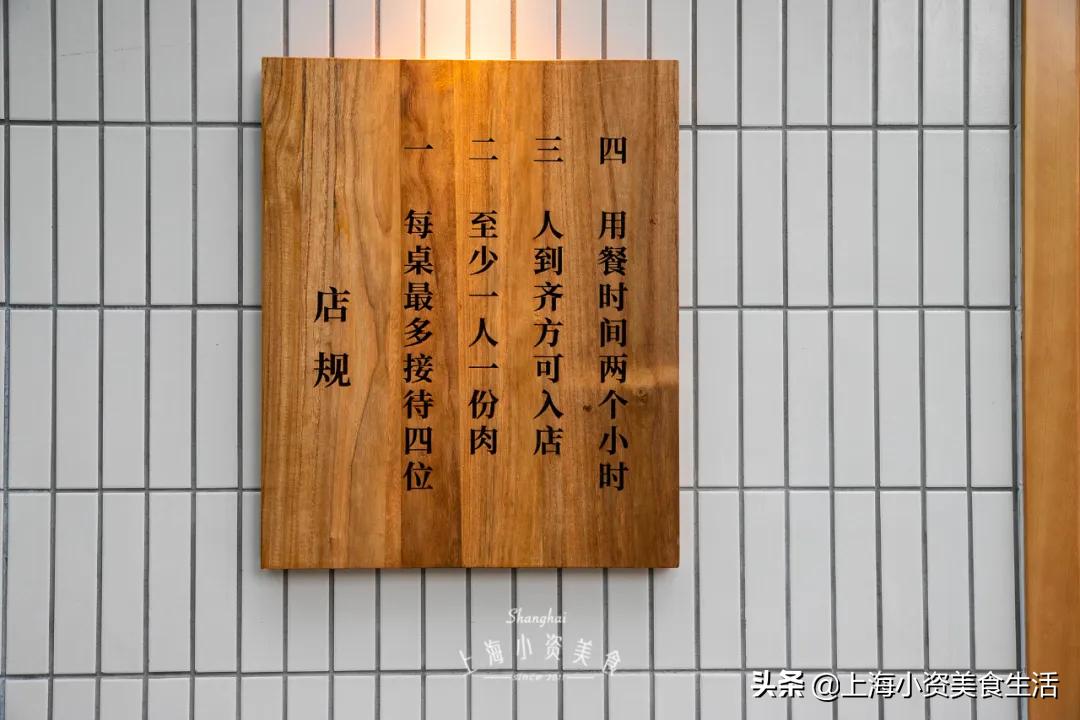 店规
一 每桌最多接待四位
二 至少一人一份肉
三 人到齐方可入店
四 用餐时间两个小时
Shanghai
上海小资美食
SINCE 2011
头条 @上海小资美食生活